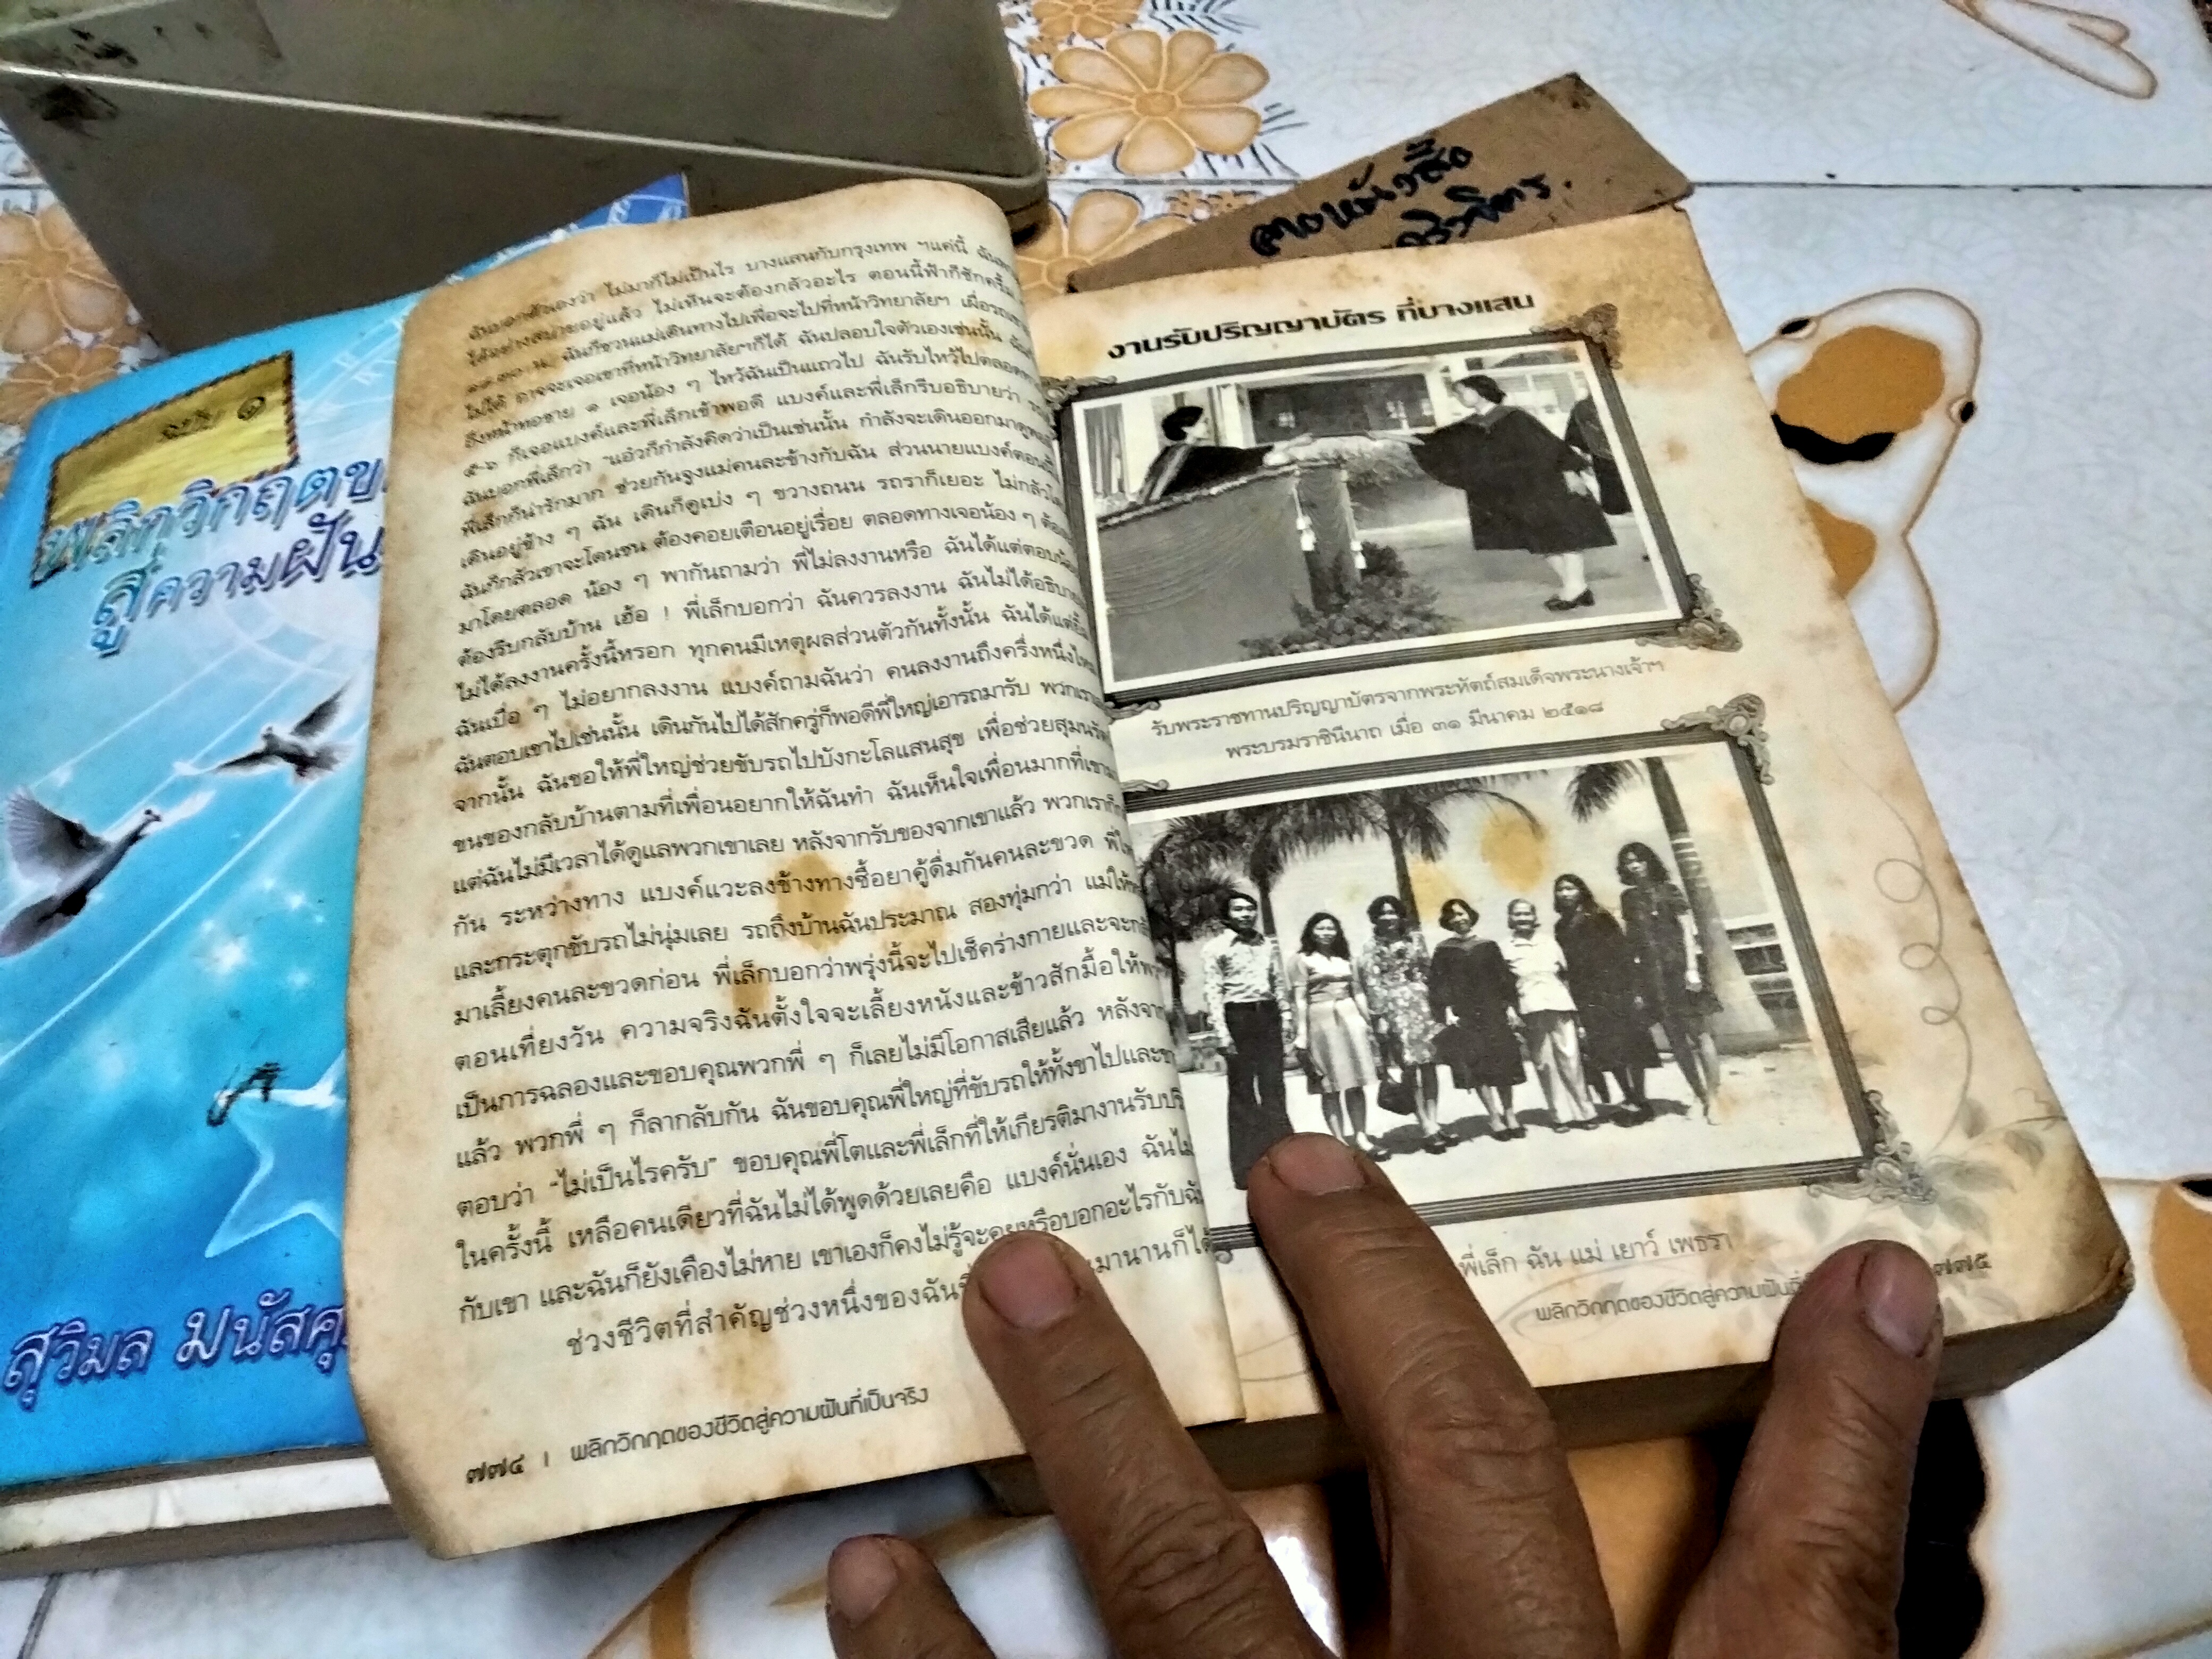 ฉบับ ๑
พลิกวิกฤตข
สู่ความฝัน
สุวิมล มนัสคุ
ฉันบอกตัวเองว่า ไม่มาก็ไม่เป็นไร บางแสนกับกรุงเทพ ฯแค่นี้
ได้อย่างสบายอยู่แล้ว ไม่เห็นจะต้องกลัวอะไร ตอนนี้ฟ้าก็ชักครึ้ม
น. ฉันก็ชวนแม่เดินทางไปเผื่อจะไปที่หน้าวิทยาลัยฯ เผื่อรถเขา
ไม่ได้ อาจจะเจอเขาที่หน้าวิทยาลัยฯก็ได้ ฉันปลอบใจตัวเองเช่นนั้น
ถึงหน้าหอชาย ๑ เจอน้อง ๆ ไหว้ฉันเป็นแถวไป ฉันรับไหว้ไปตลอด
๕-๖ ก็เจอแบงค์และพี่เล็กเข้าพอดี แบงค์และพี่เล็กรีบอธิบายว่า
ฉันบอกพี่เล็กว่า “แอ๋วก็กำลังคิดว่าเป็นเช่นนั้น กำลังจะเดินออกมาดู
พี่เล็กก็น่ารักมาก ช่วยกันจูงแม่คนละข้างกับฉัน ส่วนนายแบงค์ตอน
เดินอยู่ข้าง ๆ ฉัน เดินก็ดูเบ่ง ๆ ขวางถนน รถราก็เยอะ ไม่กลัว
ฉันก็กลัวเขาจะโดนชน ต้องคอยเตือนอยู่เรื่อย ตลอดทางเจอน้อง ๆ ต้อง
มาโดยตลอด น้อง ๆ พากันถามว่า พี่ไม่ลงงานหรือ ฉันได้แต่ตอบ
ต้องรีบกลับบ้าน เฮ้อ ! พี่เล็กบอกว่า ฉันควรลงงาน ฉันไม่ได้อธิบาย
ไม่ได้ลงงานครั้งนี้หรอก ทุกคนมีเหตุผลส่วนตัวกันทั้งนั้น ฉันได้แต่
ฉันเบื่อ ๆ ไม่อยากลงงาน แบงค์ถามฉันว่า คนลงงานถึงครึ่งหนึ่งไหม
ฉันตอบเขาไปเช่นนั้น เดินกันไปได้สักครู่ก็พอดีพี่ใหญ่เอารถมารับ พวกเรา
จากนั้น ฉันขอให้พี่ใหญ่ช่วยขับรถไปบังกะโลแสนสุข เพื่อช่วยสุมน
ขนของกลับบ้านตามที่เพื่อนอยากให้ฉันทำ ฉันเห็นใจเพื่อนมากที่เขา
แต่ฉันไม่มีเวลาได้ดูแลพวกเขาเลย หลังจากรับของจากเขาแล้ว พวกเรา
กัน ระหว่างทาง แบงค์แวะลงข้างทางซื้อยาคู้ดื่มกันคนละขวด
และกระตุกขับรถไม่นุ่มเลย รถถึงบ้านฉันประมาณ สองทุ่มกว่า แม่ให้
มาเลี้ยงคนละขวดก่อน พี่เล็กบอกว่าพรุ่งนี้จะไปเช็คร่างกายและจะ
ตอนเที่ยงวัน ความจริงฉันตั้งใจจะเลี้ยงหนังและข้าวสักมื้อให้
เป็นการฉลองและขอบคุณพวกพี่ ๆ ก็เลยไม่มีโอกาสเสียแล้ว หลังจาก
แล้ว พวกพี่ ๆ ก็ลากลับกัน ฉันขอบคุณพี่ใหญ่ที่ขับรถให้ทั้งขาไปและ
ตอบว่า “ไม่เป็นไรครับ” ขอบคุณพี่โตและพี่เล็กที่ให้เกียรติมางานรับ
ในครั้งนี้ เหลือคนเดียวที่ฉันไม่ได้พูดด้วยเลยคือ แบงค์นั่นเอง ฉันไม่
กับเขา และฉันก็ยังเคืองไม่หาย เขาเองก็คงไม่รู้จะคุยหรือบอกอะไรกับ
ช่วงชีวิตที่สำคัญช่วงหนึ่งของฉัน มานานก็ได้
๗๗๔ | พลิกวิกฤตของชีวิตสู่ความฝันที่เป็นจริง
งานรับปริญญาบัตร ที่บางแสน
รับพระราชทานปริญญาบัตรจากพระหัตถ์สมเด็จพระนางเจ้าฯ
พระบรมราชินีนาถ เมื่อ ๓๑ มีนาคม ๒๕๑๘
พี่เล็ก ฉัน แม่ เยาว์ เพชรา
พลิกวิกฤตของชีวิตสู่ความฝัน ๗๗๕